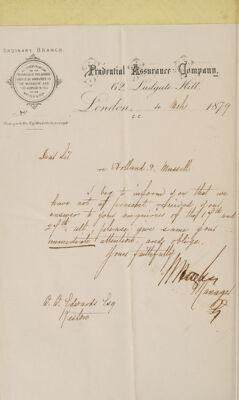 ORDINARY BRANCH.
Prudential Assurance Company,
62, Ludgate Hill,
London, 4 1879
Dear Sir
re Holland &
I beg to inform you that we
have not at present received your
answer to your enquiries of the 17th and
27th ult please give same your
immediate attention, and oblige,
Yours faithfully
Manager
W. W. Edwards Esq